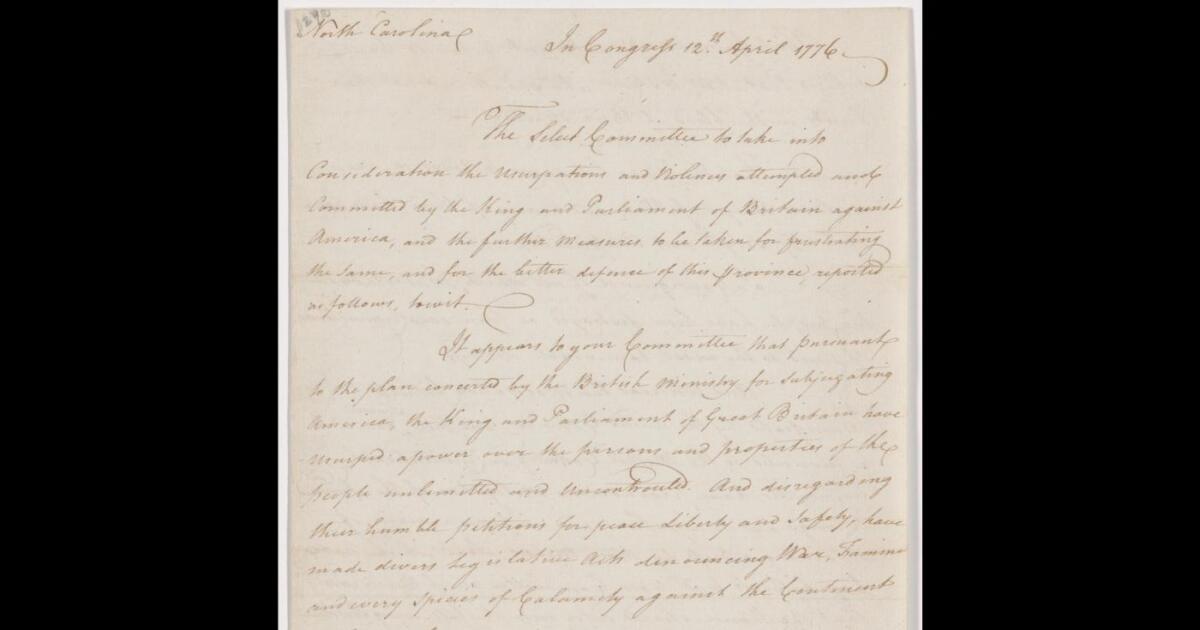 North Carolina
In Congress 12th April 1776
The Select Committee to take into
Consideration the usurpations and Violences attempted and
Committed by the King and Parliament of Britain against
America, and the further measures to be taken for frustrating
the same, and for the better defence of this province, reported
as follows, towit.
It appears to your Committee that pursuant
to the plan concerted by the British ministry for subjugating
America, the King and Parliament of Great Britain have
usurped a power over the persons and properties of the
people unlimitted and Uncontrouled. And disregarding
their humble petitions for peace Liberty and Safety, have
made divers Legislative Acts denouncing War, Famine
and every species of Calamity against the Continent